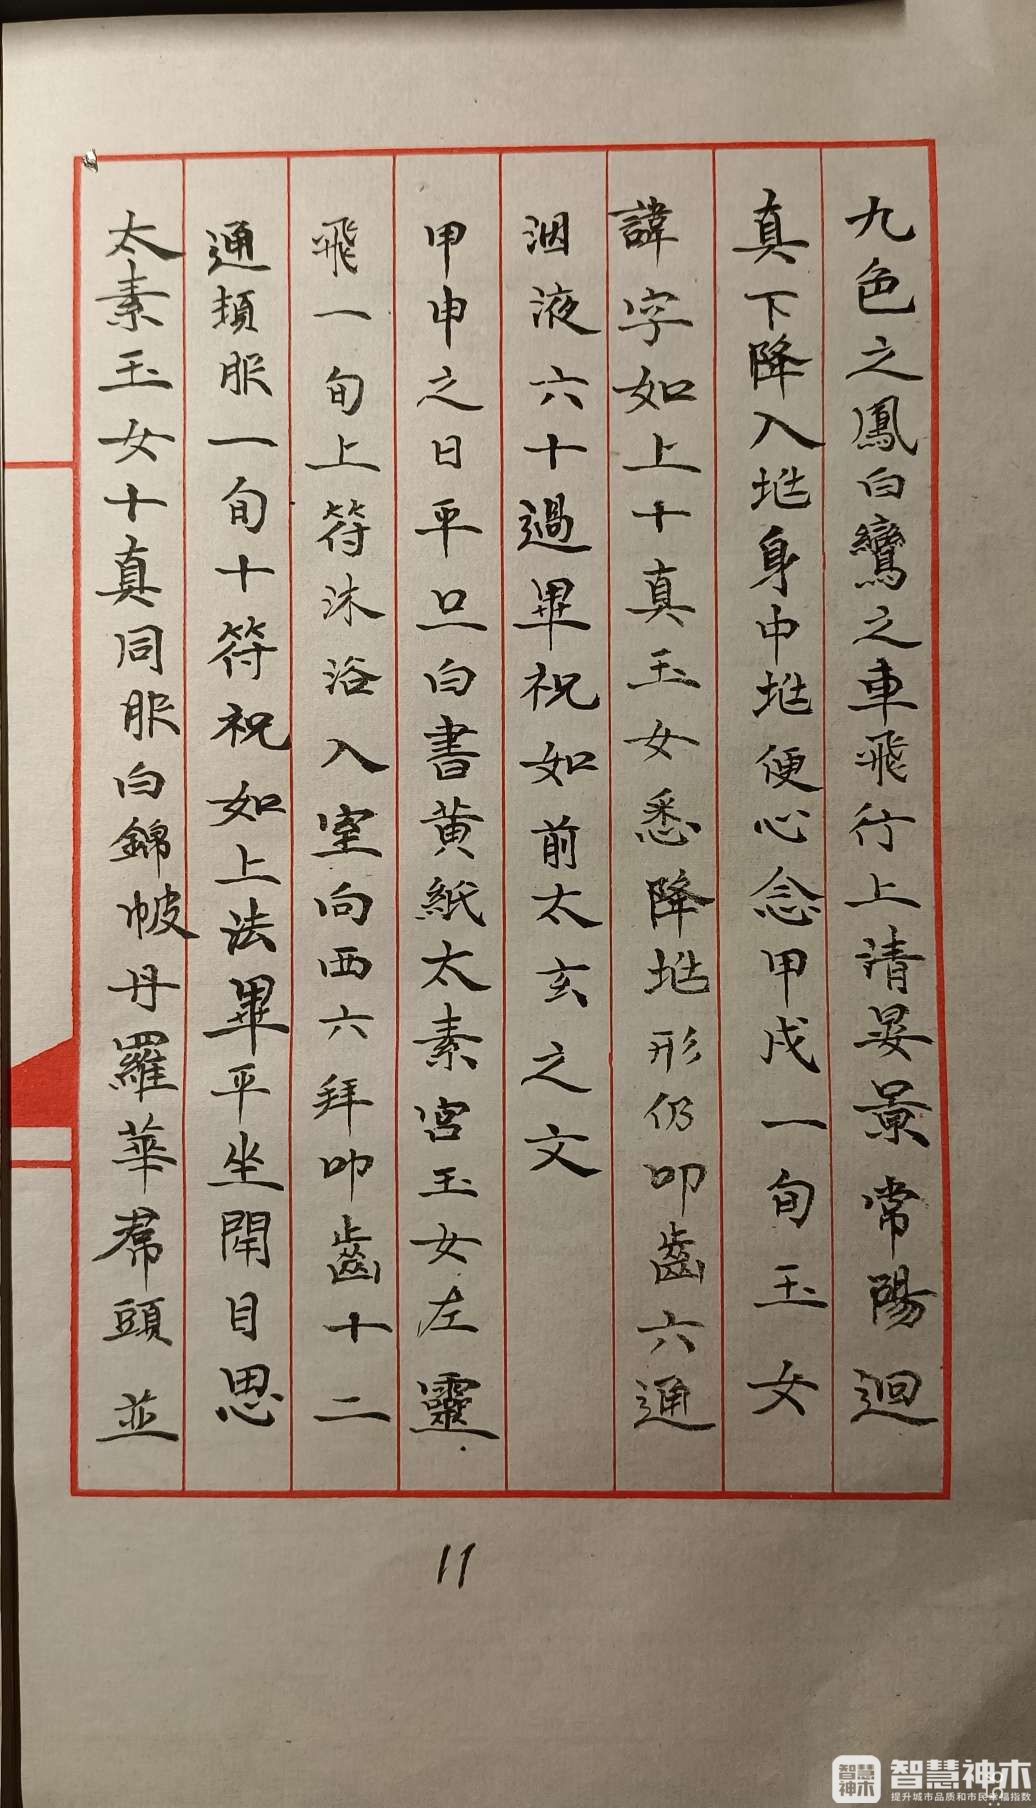 九色之鳳白鸞之車飛行上清晏景常陽迴
真下降入兆身中兆便心念甲戌一旬玉女
諱字如上十真玉女悉降兆形仍叩齒六通
咽液六十過畢祝如前太玄之文
甲申之日平旦白書黄紙太素宮玉女左靈
飛一旬上符沐浴入室向西六拜叩齒十二
通頓服一旬十符祝如上法畢平坐閇目思
太素玉女十真同服白錦帔丹羅華帬頭並
11
智慧神木
智慧神木
提升城市品质和市民幸福指数